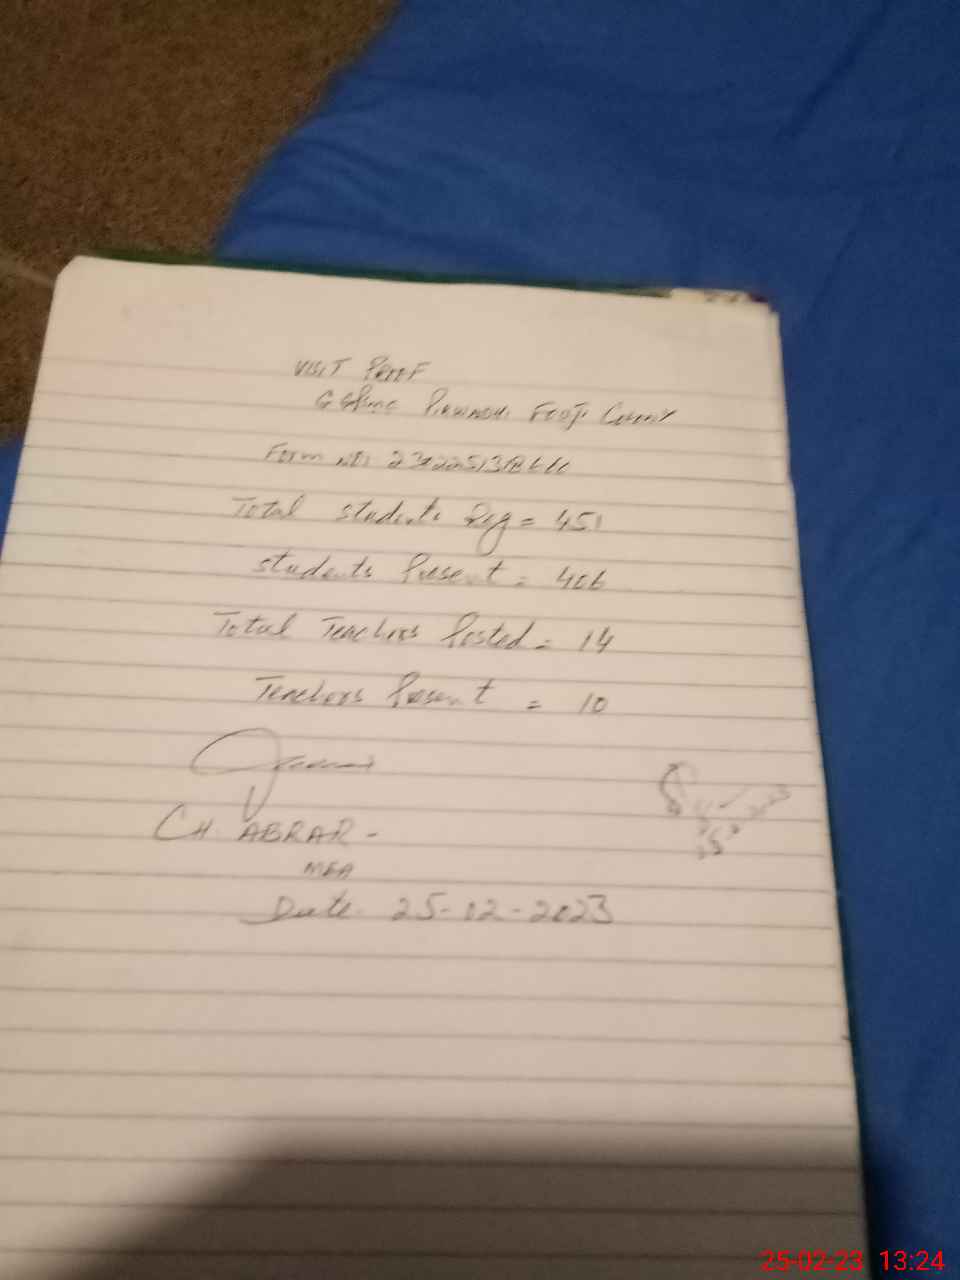 VISIT PROOF
Fooji Colony
Form NO:
Total students Reg = 451
students Present = 406
Total Teachers Posted = 14
Teachers Present = 10
CH. ABRAR -
MEA
Date. 25-02-2023
25-02-23 13:24